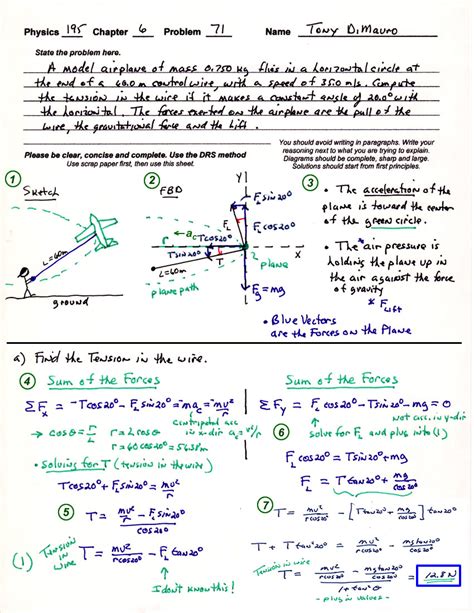 Physics 195 Chapter 6 Problem 71 Name Tony DiMauro
State the problem here.
A model airplane of mass 0.750 kg flies in a horizontal circle at
the end of a 60.0m control wire, with a speed of 35.0 m/s. Compute
the tension in the wire if it makes a constant angle of 20.0° with
the horizontal. The forces exerted on the airplane are the pull of the
wire, the gravitational force and the lift.
You should avoid writing in paragraphs. Write your
reasoning next to what you are trying to explain.
Diagrams should be complete, sharp and large.
Solutions should start from first principles.
Please be clear, concise and complete. Use the DRS method
Use scrap paper first, then use this sheet.
① Sketch
L=60m
ground
② FBD
y
F_L sin20°
F_L
F_L cos20°
a_c
Tcos20°
Tsin20°
T
x
L=60m
plane
plane path
F_g = mg
③ • The acceleration of the
plane is toward the center
of the green circle.
• The air pressure is
holding the plane up in
the air against the force
of gravity
* F_Lift
• Blue Vectors
are the Forces on the Plane
a) Find the Tension in the wire.
④ Sum of the Forces
ΣF_x = -Tcos20° - F_L sin20° = -ma_c = -mv²/r
centripetal acc.
in x-dir a_c = v²/r
→ cosθ = r/L → r = L cosθ
r = 60 cos20° = 56.38m
• Solving for T (tension in the wire)
Tcos20° + F_L sin20° = mv²/r
⑤ T = mv²/(r cos20°) - F_L sin20°/cos20°
Tension in wire
(1) T = mv²/(r cos20°) - F_L tan20°
I don't know this!
Sum of the Forces
ΣF_y = F_L cos20° - Tsin20° - mg = 0
Not acc. in y-dir
⑥ solve for F_L and plug into (1)
F_L cos20° = Tsin20° + mg
F_L = T tan20° + mg/cos20°
⑦ T = mv²/(r cos20°) - [T tan20° + mg/cos20°] tan20°
T + T tan²20° = mv²/(r cos20°) - mg tan20°/cos20°
Tension in wire
T = (mv²/(r cos20°) - mg tan20°/cos20°)/(1 + tan²20°) = 12.8 N
- plug in values -